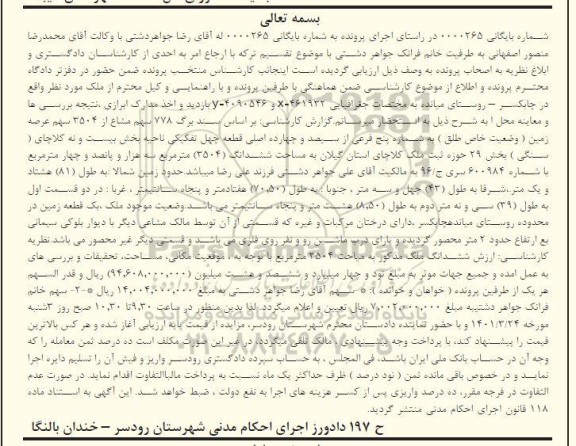 بسمه تعالی
شماره بایگانی ۰۰۰۰۲۶۵ در راستای اجرای پرونده به شماره بایگانی ۰۰۰۰۲۶۵ له آقای رضا جواهردشتی با وکالت آقای محمدرضا
منصور اصفهانی به طرفیت خانم فرانک جواهر دشتی با موضوع تقسیم ترکه با ارجاع امر به احدی از کارشناسان دادگستری و
ابلاغ نظریه به اصحاب پرونده به وصف ذیل ارزیابی گردیده است اینجانب کارشناس منتخب پرونده ضمن حضور در دفتر دادگاه
محترم پرونده و اطلاع از موضوع کارشناسی ضمن هماهنگی با طرفین پرونده و با راهنمایی و کیل محترم از ملک مورد نظر واقع
در چابکسر – روستای میانده به مختصات جغرافیایی X-۴۶۱۹۳۳ و Y-۴۰۹۰۵۴۶ بازدید و اخذ مدارک ابرازی ،نتیجه بررسی ها
و معاینه محل ا به شرح ذیل به استحضار میرسانم گزارش کارشناسی: بر اساس سند برگ ۷۷۸ سهم مشاع از ۳۵۰۴ سهم عرصه
زمین ( وضعیت خاص طلق ) به شماره پنج فرعی از سیصد و چهارده اصلی قطعه چهل تفکیکی ناحیه بخش بیست و نه کلاچای (
سنگی ) بخش ۲۹ حوزه ثبت ملک کلاچای استان گیلان به مساحت ششدانگ (۳۵۰۴) مترمربع سه هزار و پانصد و چهار مترمربع
با شماره ۶۰۰۹۸۴ سری ج/۹۶ به مالکیت آقای علی جواهر دشتی فرزند علی رضا میباشد.حدود زمین شمالا :به طول (۸۱) هشتاد
و یک متر،شرقا به طول (۴۳) چهل و سه متر ، جنوبا :به طول (۷۰،۵۰) هفتادمتر و پنجاه سانتیمتر ، غربا : در دو قسمت اول
به طول (۳۹) سی و نه متر دوم به طول (۸،۵۰) هشت متر و پنجاه سانتیمتر می باشد وضعیت موجود ملک ،یک قطعه زمین در
محدوده روستای میاندهچابکسر ،دارای درختان مرکبات و غیره که قسمتی از آن توسط مالک مشاعی دیگر با دیوار بلوکی سیمانی
بع ارتفاع حدود ۲ متر محصور گردیده و یارای درب ماشین رو و نفر روی فلزی می باشد و قسمت دیگر غیر محصور می باشد نظریه
کارشناسی: ارزش ششدانگ ملک مذکور به مباحت ۳۵۰۴ مترمربع با توجه به موقعیت مکانی، مساحت، تحقیقات و بررسی های
به عمل امده و جمیع جهات موثر به مبلغ نود و چهار میلیارد و ششصد و هشت میلیون (۹۴،۶۰۸،۰۰۰،۰۰۰) ریال و قدر السهم
هر یک از طرفین پرونده ( خواهان و خوانده ): * سهم آقای رضا جواهر دشتی به مبلغ ۱۴،۰۰۴،۰۰۰،۰۰۰ ریال *-۲- سهم خانم
فرانک جواهر دشتیبه مبلغ ۷،۰۰۲،۰۰۰،۰۰۰ ریال تعیین و اعلام میگردد لفذا بدین منظور در ساعت ۹،۳۰تا ۱۰،۳۰ صبح روز ۳شنبه
مورخه ۱۴۰۱/۳/۲۴ و با حضور نماینده دادستان محترم شهرستان رودسر، مزایده از قیمت پایه ارزیابی آغاز شده و هر کس بالاترین
قیمت را پیشنهاد کند، با پرداخت وجه پیشنهادی ، مالک تلقی میگردد، در غیر این صورت مکلف است ده درصد ثمن معامله را که
وجه آن در حساب بانک ملی ایران باشد، فی المجلس ، به حساب سپرده دادگستری رودسر واریز و فیش آن را تسلیم دایره اجرا
نماید و در خصوص باقی مانده ثمن ( نود درصد ) ظرف حداکثر یک ماه نسبت به پرداخت مابالتفاوت اقدام نماید. در صورت عدم
التفاوت در فرجه مقرر، ده درصد واریزی پس از کسر هزینه های اجرا به نفع دولت ، ضبط خواهد شد. این آگهی به استناد ماده
۱۱۸ قانون اجرای احکام مدنی منتشر گردید.
ح ۱۹۷ دادورز اجرای احکام مدنی شهرستان رودسر – خندان بالنگا